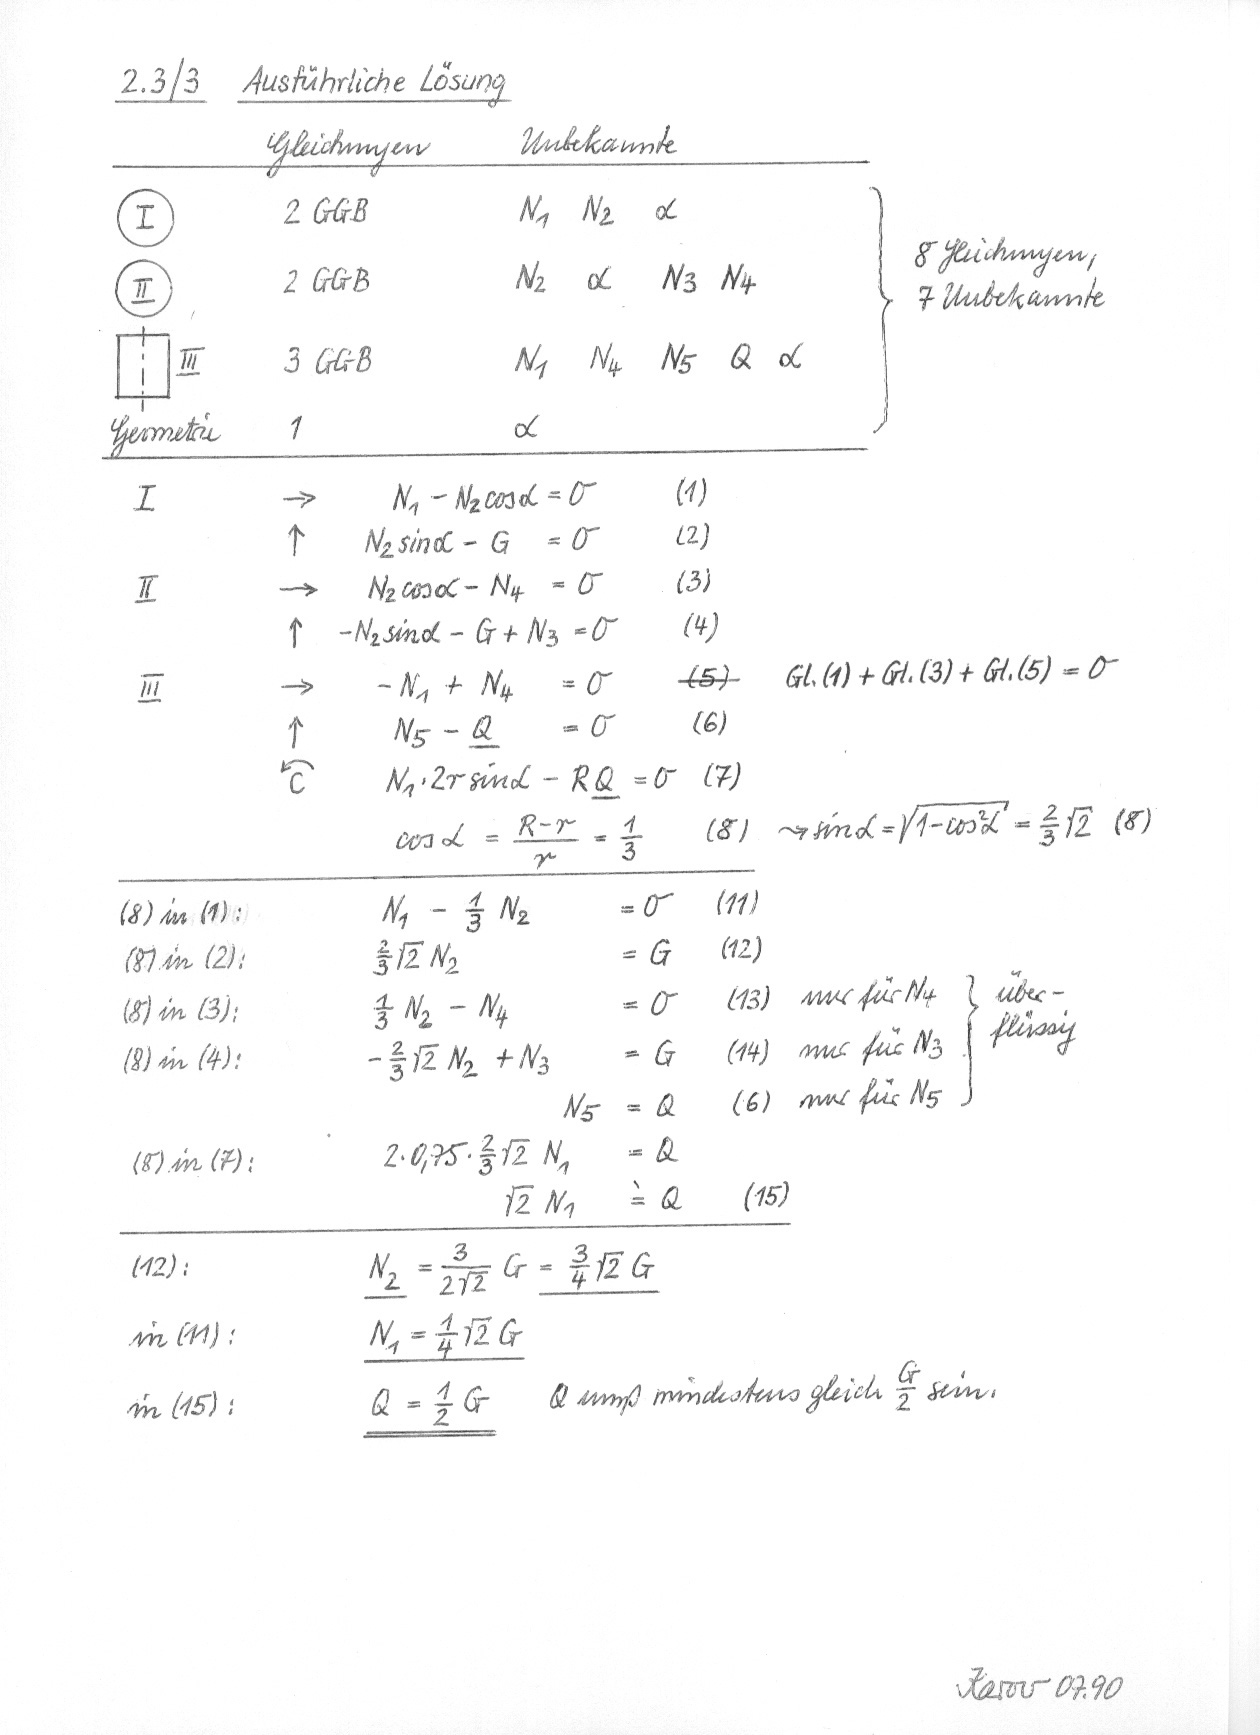 2.3/3 Ausführliche Lösung
Gleichungen Unbekannte
I 2 GGB N₁ N₂ α
II 2 GGB N₂ α N₃ N₄
III 3 GGB N₁ N₄ N₅ Q α
Geometrie 1 α
8 Gleichungen,
7 Unbekannte
I → N₁ - N₂ cosα = 0 (1)
↑ N₂ sinα - G = 0 (2)
II → N₂ cosα - N₄ = 0 (3)
↑ -N₂ sinα - G + N₃ = 0 (4)
III → -N₁ + N₄ = 0 (5) Gl.(1) + Gl.(3) + Gl.(5) = 0
↑ N₅ - Q = 0 (6)
C N₁·2r sinα - RQ = 0 (7)
cosα = (R-r)/r = 1/3 (8) ⤳ sinα = √(1-cos²α) = 2/3 √2 (8)
(8) in (1): N₁ - 1/3 N₂ = 0 (11)
(8) in (2): 2/3 √2 N₂ = G (12)
(8) in (3): 1/3 N₂ - N₄ = 0 (13) nur für N₄
(8) in (4): -2/3 √2 N₂ + N₃ = G (14) nur für N₃
N₅ = Q (6) nur für N₅
über-
flüssig
(8) in (7): 2·0,75·2/3 √2 N₁ = Q
√2 N₁ = Q (15)
(12): N₂ = 3/(2√2) G = 3/4 √2 G
in (11): N₁ = 1/4 √2 G
in (15): Q = 1/2 G Q muß mindestens gleich G/2 sein.
07.90